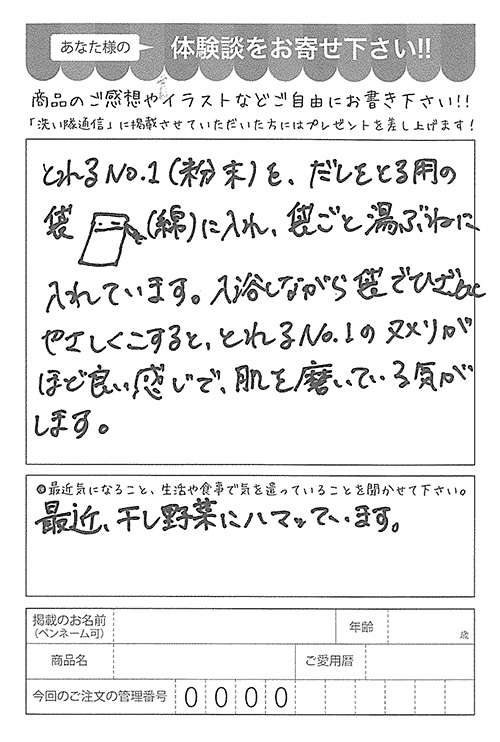 あなた様の 体験談をお寄せ下さい!!
商品のご感想やイラストなどご自由にお書き下さい!!
「洗い隊通信」に掲載させていただいた方にはプレゼントを差し上げます!
とれるNo.1(粉末)を、だしをとる用の
袋 (綿)に入れ、袋ごと湯ぶねに
入れています。入浴しながら袋でひざなど
やさしくこすると、とれるNo.1のヌメリが
ほど良い感じで、肌を磨いている気が
します。
◎最近気になること、生活や食事で気を遣っていることを聞かせて下さい。
最近、干し野菜にハマッています。
掲載のお名前
(ペンネーム可)
年齢
歳
商品名
ご愛用暦
今回のご注文の管理番号 0 0 0 0